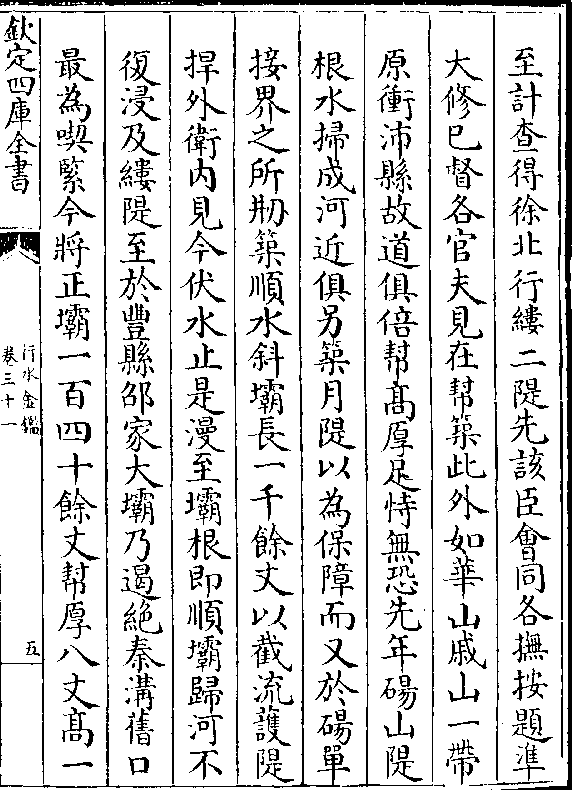 至計查得徐北行縷二隄先該臣會同各撫按題準
大修已督各官夫見在幇築此外如華山戚山一帶
原衝沛縣故道俱倍幇髙厚足恃無恐先年碭山隄
根水掃成河近俱另築月隄以為保障而又於碭單
接界之所剏築順水斜壩長一千餘丈以截流護隄
捍外衛内見今伏水止是漫至壩根即順壩歸河不
復浸及縷隄至於豐縣邵家大壩乃遏絶秦溝舊口
最為喫緊今將正壩一百四十餘丈幇厚八丈髙一
欽定四庫全書
行水金鑑
卷三十一
五